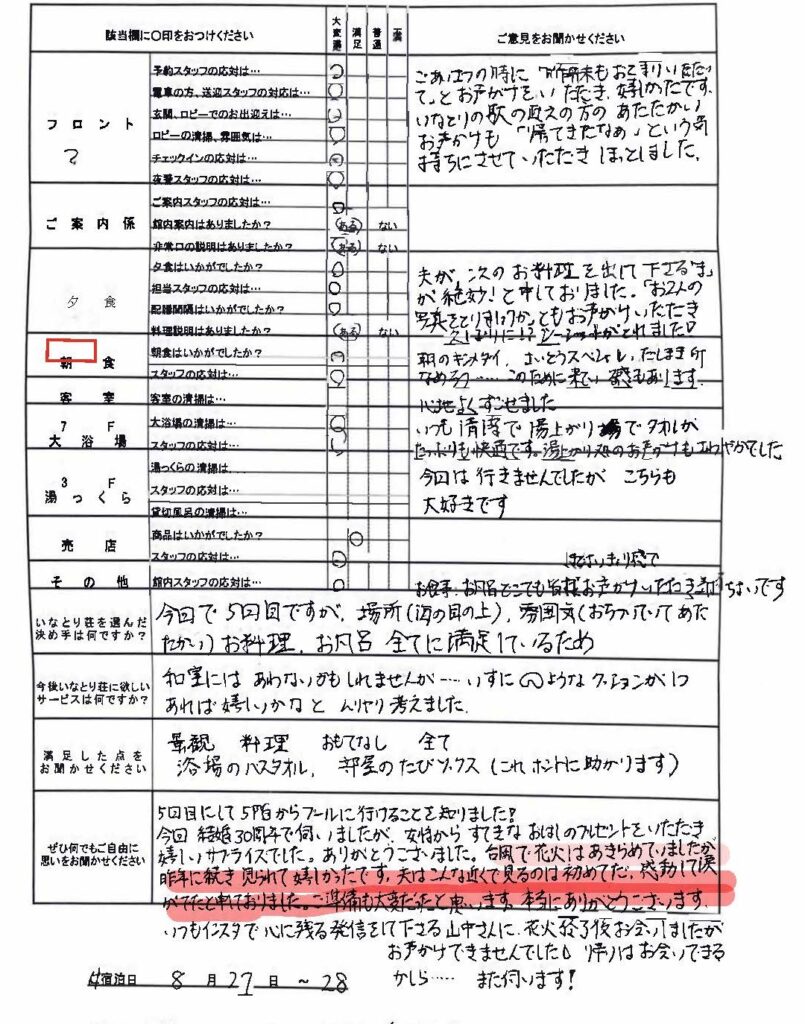 該当欄に○印をおつけください 大変満足 満足 普通 不満 ご意見をお聞かせください
フロント
?
予約スタッフの応対は…
電車の方、送迎スタッフの対応は…
玄関、ロビーでのお出迎えは…
ロビーの清掃、雰囲気は…
チェックインの応対は…
夜警スタッフの応対は…
ごあいさつの時に
とお声がけをいただき、嬉しかったです。
いなとりの駅の出迎えの方の あたたかい
お声かけも 「帰てきたなぁ」という気
持ちにさせていただき ほっとしました。
ご案内係
ご案内スタッフの応対は…
館内案内はありましたか? (ある) ない
非常口の説明はありましたか? (ある) ない
夕食
夕食はいかがでしたか?
担当スタッフの応対は…
配膳間隔はいかがでしたか?
料理説明はありましたか? (ある) ない
夫が、次のお料理を出して下さる「ま」
が絶妙!と申しておりました。「お2人の
写真をとりましょうか」ともお声かけいただき
朝食
朝食はいかがでしたか?
スタッフの応対は…
朝のキンメダイ、
なめろう…… このために来ている感もあります。
客室
客室の清掃は…
心地よくすごせました
7F
大浴場
大浴場の清掃は…
スタッフの応対は…
いつも清潔で 湯上がり場でタオルが
たっぷりも快適です。湯上がり処のお声がけもさわやかでした
3F
湯っくら
湯っくらの清掃は
スタッフの応対は…
貸切風呂の清掃は…
今回は行きませんでしたが こちらも
大好きです
売店
商品はいかがでしたか?
スタッフの応対は…
その他
館内スタッフの応対は…
お食事、お风呂どこでも皆様お声がけいただき
いなとり荘を選んだ
決め手は何ですか?
今回で5回目ですが、場所(海の目の上)、雰囲気(おちついていてあた
たかい) お料理、お风呂 全てに満足しているため
今後いなとり荘に欲しい
サービスは何ですか?
和室には あわないかもしれませんが…… いすに のようなクッションが1つ
あれば嬉しいかなと 考えました。
満足した点を
お聞かせください
景観 料理 おもてなし 全て
浴場のバスタオル、 部屋のたびソックス(これホントに助かります)
ぜひ何でもご自由に
思いをお聞かせください
5回目にして5階からプールに行けることを知りました!
今回 結婚30周年で伺いましたが、女将から すてきなおはしのプレゼントをいただき
嬉しいサプライズでした。ありがとうございました。台風で花火はあきらめていましたが
昨年に続き見られて嬉しかったです。夫はこんな近くで見るのは初めてだ、感動して涙
がでたと申しておりました。ご準備も大変だったと思います。本当にありがとうございます。
いつもインスタで心に残る発信をして下さる山中さんに、花火終了後お会いしましたが
お声かけできませんでした。 帰りはお会いできる
かしら…… また伺います!
宿泊日 8 月 27 日 ~ 28